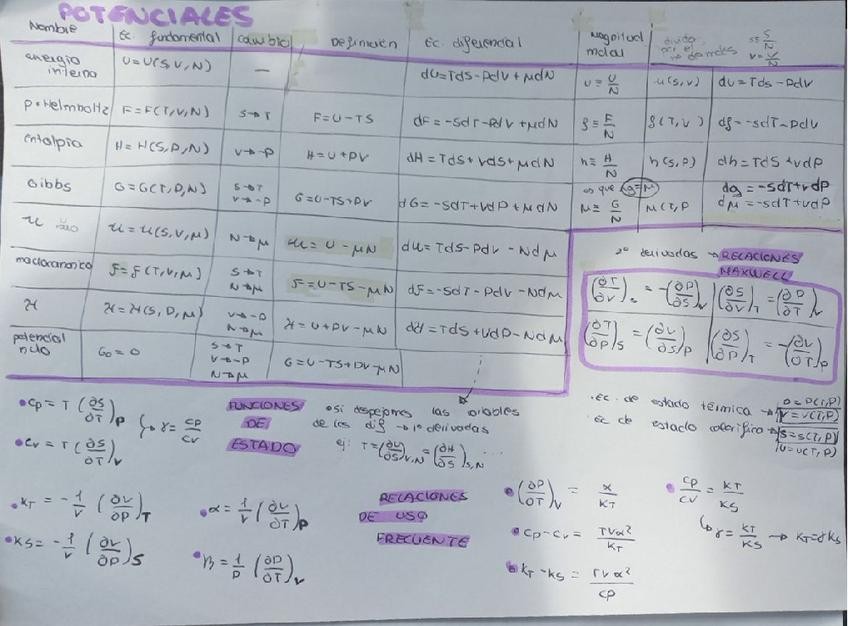 POTENCIALES
Nombre Ec. fundamental cambio Definición Ec. diferencial magnitud molar
energía interna U=U(S,V,N) — dU=TdS-PdV+μdN u≡U/N u(s,v) du=Tds-Pdv
P. Helmholtz F=F(T,V,N) S→T F=U-TS dF=-SdT-PdV+μdN f≡F/N f(T,v) df=-sdT-Pdv
entalpía H=H(S,P,N) V→-P H=U+PV dH=TdS+VdS+μdN h≡H/N h(s,P) dh=Tds+vdP
Gibbs G=G(T,P,N) S→T V→-P G=U-TS+PV dG=-SdT+VdP+μdN es que g=μ μ≡G/N μ(T,P dg=-sdT+vdP dμ=-sdT+vdP
U U=U(S,V,μ) N→μ U=U-μN dU=TdS-PdV-Ndμ
macrocanónico F=F(T,V,μ) S→T N→μ F=U-TS-μN dF=-SdT-PdV-Ndμ
H H=H(S,P,μ) V→-P N→μ H=U+PV-μN dH=TdS+VdP-Ndμ
potencial nulo G₀=0 S→T V→-P N→μ G=U-TS+PV-μN
2º derivadas → RELACIONES
MAXWELL
(∂T/∂V)_S=-(∂P/∂S)_V (∂S/∂V)_T=(∂P/∂T)_V
(∂T/∂P)_S=(∂V/∂S)_P (∂S/∂P)_T=-(∂V/∂T)_P
• Cp=T(∂S/∂T)_P
→ γ=Cp/Cv
• Cv=T(∂S/∂T)_V
FUNCIONES
DE
ESTADO
• si despejamos las
de las dif → 1º derivadas
ej: T=(∂U/∂S)_V,N=(∂H/∂S)_S,N ...
• Ec. de estado térmica → P=P(T,P) V=V(T,P)
• Ec de estado calorífica → S=S(T,P) U=U(T,P)
• KT=-1/V(∂V/∂P)_T
• KS=-1/V(∂V/∂P)_S
• α=1/V(∂V/∂T)_P
• β=1/P(∂P/∂T)_V
RELACIONES
DE USO
FRECUENTE
• (∂P/∂T)_V=α/KT
• Cp-Cv=TVα²/KT
• KT-KS=TVα²/Cp
• Cp/Cv=KT/KS
↳ γ=KT/KS → KT=γKS